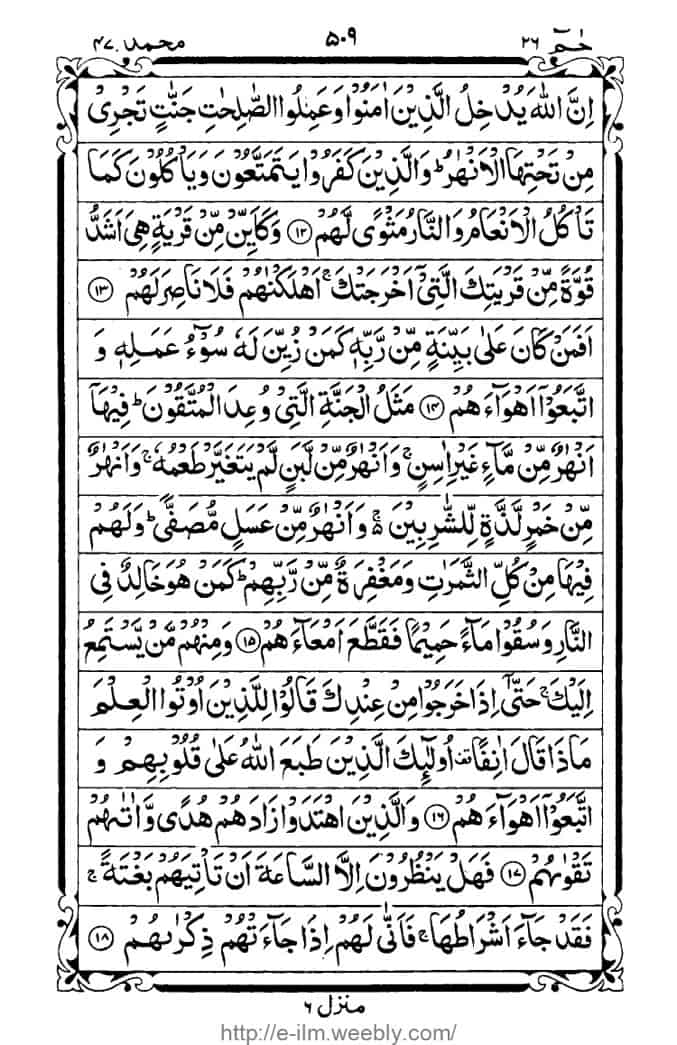 حٰمٓ ٢٦ ٥٠٩ محمد ٤٧
اِنَّ اللّٰهَ يُدْخِلُ الَّذِيْنَ اٰمَنُوْا وَعَمِلُوا الصّٰلِحٰتِ جَنّٰتٍ تَجْرِيْ
مِنْ تَحْتِهَا الْاَنْهٰرُ ؕ وَالَّذِيْنَ كَفَرُوْا يَتَمَتَّعُوْنَ وَيَاْكُلُوْنَ كَمَا
تَاْكُلُ الْاَنْعَامُ وَالنَّارُ مَثْوًى لَّهُمْ ⁠﴿١٢﴾ وَكَاَيِّنْ مِّنْ قَرْيَةٍ هِيَ اَشَدُّ
قُوَّةً مِّنْ قَرْيَتِكَ الَّتِيْٓ اَخْرَجَتْكَ ۚ اَهْلَكْنٰهُمْ فَلَا نَاصِرَ لَهُمْ ﴿١٣﴾
اَفَمَنْ كَانَ عَلٰى بَيِّنَةٍ مِّنْ رَّبِّهٖ كَمَنْ زُيِّنَ لَهٗ سُوْٓءُ عَمَلِهٖ وَ
اتَّبَعُوْٓا اَهْوَآءَهُمْ ﴿١٤﴾ مَثَلُ الْجَنَّةِ الَّتِيْ وُعِدَ الْمُتَّقُوْنَ ؕ فِيْهَآ
اَنْهٰرٌ مِّنْ مَّآءٍ غَيْرِ اٰسِنٍ ۚ وَاَنْهٰرٌ مِّنْ لَّبَنٍ لَّمْ يَتَغَيَّرْ طَعْمُهٗ ۚ وَاَنْهٰرٌ
مِّنْ خَمْرٍ لَّذَّةٍ لِّلشّٰرِبِيْنَ ۚ۬ وَاَنْهٰرٌ مِّنْ عَسَلٍ مُّصَفًّى ؕ وَلَهُمْ
فِيْهَا مِنْ كُلِّ الثَّمَرٰتِ وَمَغْفِرَةٌ مِّنْ رَّبِّهِمْ ؕ كَمَنْ هُوَ خَالِدٌ فِي
النَّارِ وَسُقُوْا مَآءً حَمِيْمًا فَقَطَّعَ اَمْعَآءَهُمْ ﴿١٥﴾ وَمِنْهُمْ مَّنْ يَّسْتَمِعُ
اِلَيْكَ ۚ حَتّٰٓى اِذَا خَرَجُوْا مِنْ عِنْدِكَ قَالُوْا لِلَّذِيْنَ اُوْتُوا الْعِلْمَ
مَاذَا قَالَ اٰنِفًا ۫ اُولٰٓئِكَ الَّذِيْنَ طَبَعَ اللّٰهُ عَلٰى قُلُوْبِهِمْ وَ
اتَّبَعُوْٓا اَهْوَآءَهُمْ ﴿١٦﴾ وَالَّذِيْنَ اهْتَدَوْا زَادَهُمْ هُدًى وَّاٰتٰىهُمْ
تَقْوٰىهُمْ ﴿١٧﴾ فَهَلْ يَنْظُرُوْنَ اِلَّا السَّاعَةَ اَنْ تَاْتِيَهُمْ بَغْتَةً ۚ
فَقَدْ جَآءَ اَشْرَاطُهَا ۚ فَاَنّٰى لَهُمْ اِذَا جَآءَتْهُمْ ذِكْرٰىهُمْ ﴿١٨﴾
منزل ٦
http://e-ilm.weebly.com/